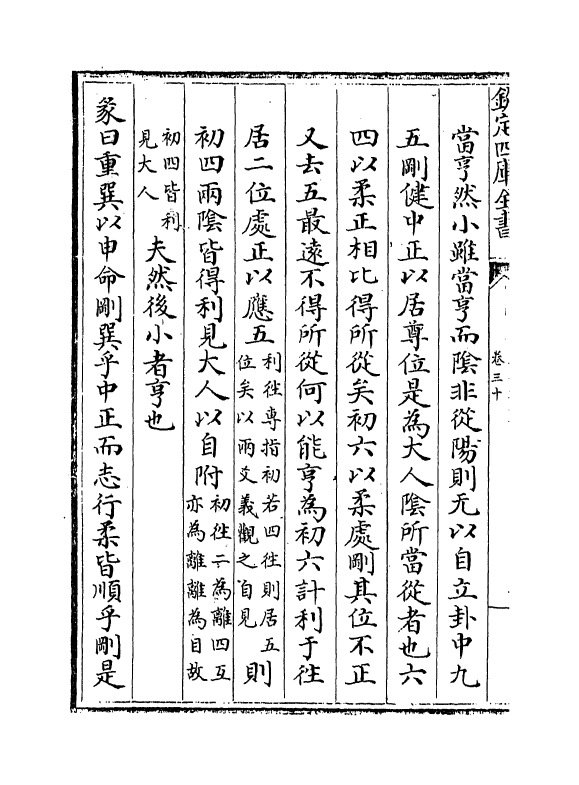 欽定四庫全書
卷三十
當亨然小雖當亨而陰非從陽則无以自立卦中九
五剛健中正以居尊位是為大人陰所當從者也六
四以柔正相比得所從矣初六以柔處剛其位不正
又去五最遠不得所從何以能亨為初六計利于往
居二位處正以應五利往專指初若四往則居五位矣以兩爻義觀之自見則
初四兩陰皆得利見大人以自附初往二為離四互亦為離離為目故
初四皆利見大人夫然後小者亨也
彖曰重巽以申命剛巽乎中正而志行柔皆順乎剛是